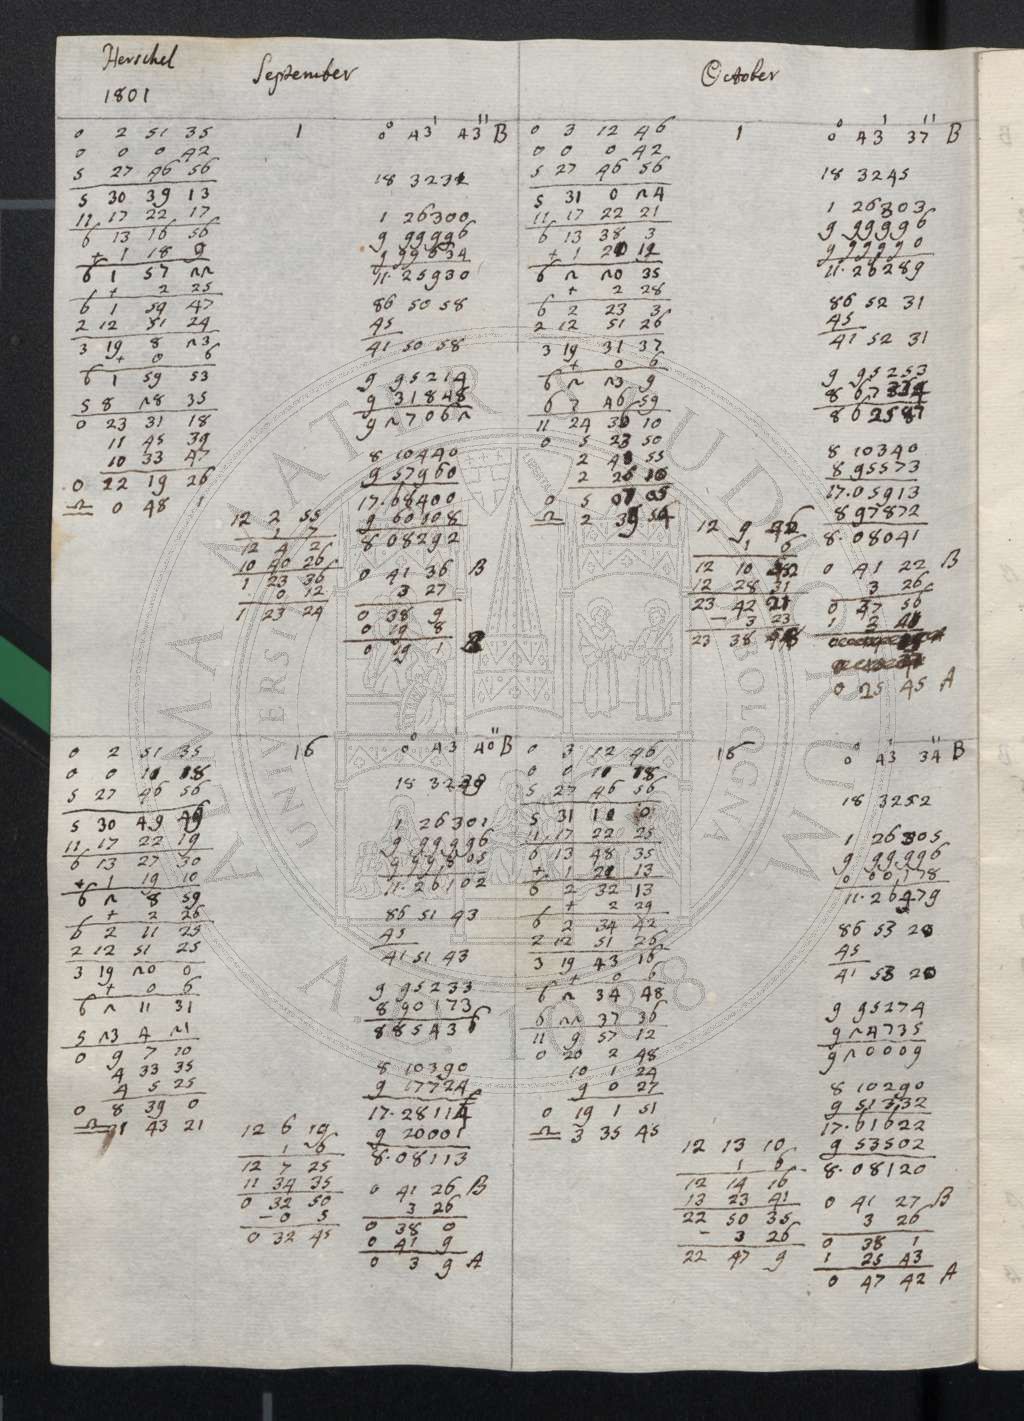 Herschel
1801
September
October
0 2 51 35
0 0 0 42
5 27 46 56
5 30 39 13
11 17 22 17
6 13 16 56
+ 1 18 9
6 1 57 22
+ 2 25
6 1 59 47
2 12 51 24
3 19 8 23
+ 0 6
6 1 59 53
5 8 28 35
0 23 31 18
11 45 39
10 33 47
0 22 19 26
♎ 0 48 1
1
12 2 55
12 4 2
10 40 26
1 23 36
0 12
1 23 24
0° 43' 43" B
18 3232
1 26300
9 99996
9 99634
11.25930
86 50 58
45
41 50 58
9 95214
9 31848
9 27062
8 10440
9 57960
17.68400
9 60108
8 08292
0 41 36 B
3 27
0 38 9
0 19 8
0 19 1
0 3 12 46
0 0 0 42
5 27 46 56
5 31 0 24
11 17 22 21
6 13 38 3
+ 1 20 12
6 2 20 35
+ 2 28
6 2 23 3
2 12 51 26
3 19 31 37
+ 0 6
6 2 23 9
6 7 46 59
11 24 36 10
0 5 23 50
2 41 55
2 26 10
0 5 07 05
♎ 2 39 54
1
12 9
1 6
12 10
12 28 31
23 42 21
- 3 23
23 38
0° 43' 37" B
18 3245
1 26303
9 99996
9 99990
11.26289
86 52 31
45
41 52 31
9 95253
8 67334
8 62587
8 10340
8 95573
17.05913
8 97872
8.08041
0 41 22 B
3 26
0 37 56
0 25 45 A
0 2 51 35
0 0 10 18
5 27 46 56
5 30 49 49
11 17 22 19
6 13 27 30
+ 1 19 10
6 2 8 59
+ 2 26
6 2 11 25
2 12 51 25
3 19 20 0
+ 0 6
6 2 11 31
5 23 4 21
0 9 7 10
4 33 35
4 5 25
0 8 39 0
♎ 1 43 21
16
12 6 10
1 26
12 7 25
11 34 35
0 32 50
- 0 5
0 32 45
0° 43 40" B
18 3239
1 26301
9 99996
9 99805
11.26102
86 51 43
45
41 51 43
9 95233
8 90173
8 85436
8 10390
9 17724
17.28114
9 20001
8.08113
0 41 26 B
3 26
0 38 0
0 41 9
0 3 9 A
0 3 12 46
0 0 10 18
5 27 46 56
5 31 10 0
11 17 22 25
6 13 48 35
+ 1 21 13
6 2 32 13
+ 2 29
6 2 34 42
2 12 51 26
3 19 43 16
+ 0 6
6 2 34 48
6 22 37 36
11 9 57 12
0 20 2 48
10 1 24
9 0 27
0 19 1 51
♎ 3 35 45
16
12 13 10
1 6
12 14 16
13 23 41
22 50 35
- 3 26
22 47 9
0° 43' 34" B
18 3252
1 26305
9 99996
0 00178
11.26479
86 53 20
45
41 53 20
9 95274
9 24735
9 20009
8 10290
9 51332
17.61622
9 53502
8.08120
0 41 27 B
3 26
0 38 1
1 25 43
0 47 42 A
ALMA MATER STUDIORUM
UNIVERSITAS BONONIENSIS
A.D. 1088